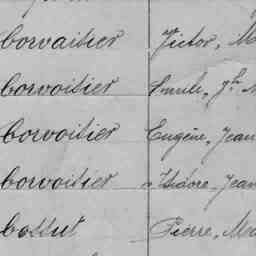 Corvaitier Victor, M
Corvoitier Emile, Jh
Corvoitier Eugène, Jean
Corvoitier Isidore, Jean
Cossut Pierre, Ma